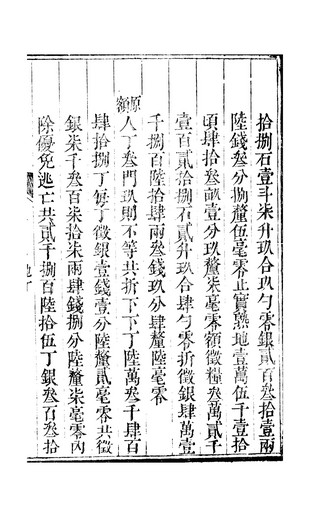 拾捌石壹斗柒升玖合玖勺零銀貳百叁拾壹兩
陸錢叁分捌釐伍毫零止實熟地壹萬伍千壹拾
頃肆拾叁畝壹分玖釐柒毫零額徵糧叁萬貳千
壹百貳拾捌石貳升玖合肆勺零折徵銀肆萬壹
千捌百陸拾肆兩叁錢玖分肆釐陸毫零
原額人丁叁門玖則不等共折下下丁陸萬叁千肆百
肆拾捌丁每丁徵銀壹錢壹分陸釐貳毫零共徵
銀柒千叁百柒拾柒兩肆錢捌分陸釐柒毫零內
除優免逃亡共貳千捌百陸拾伍丁銀叁百叁拾